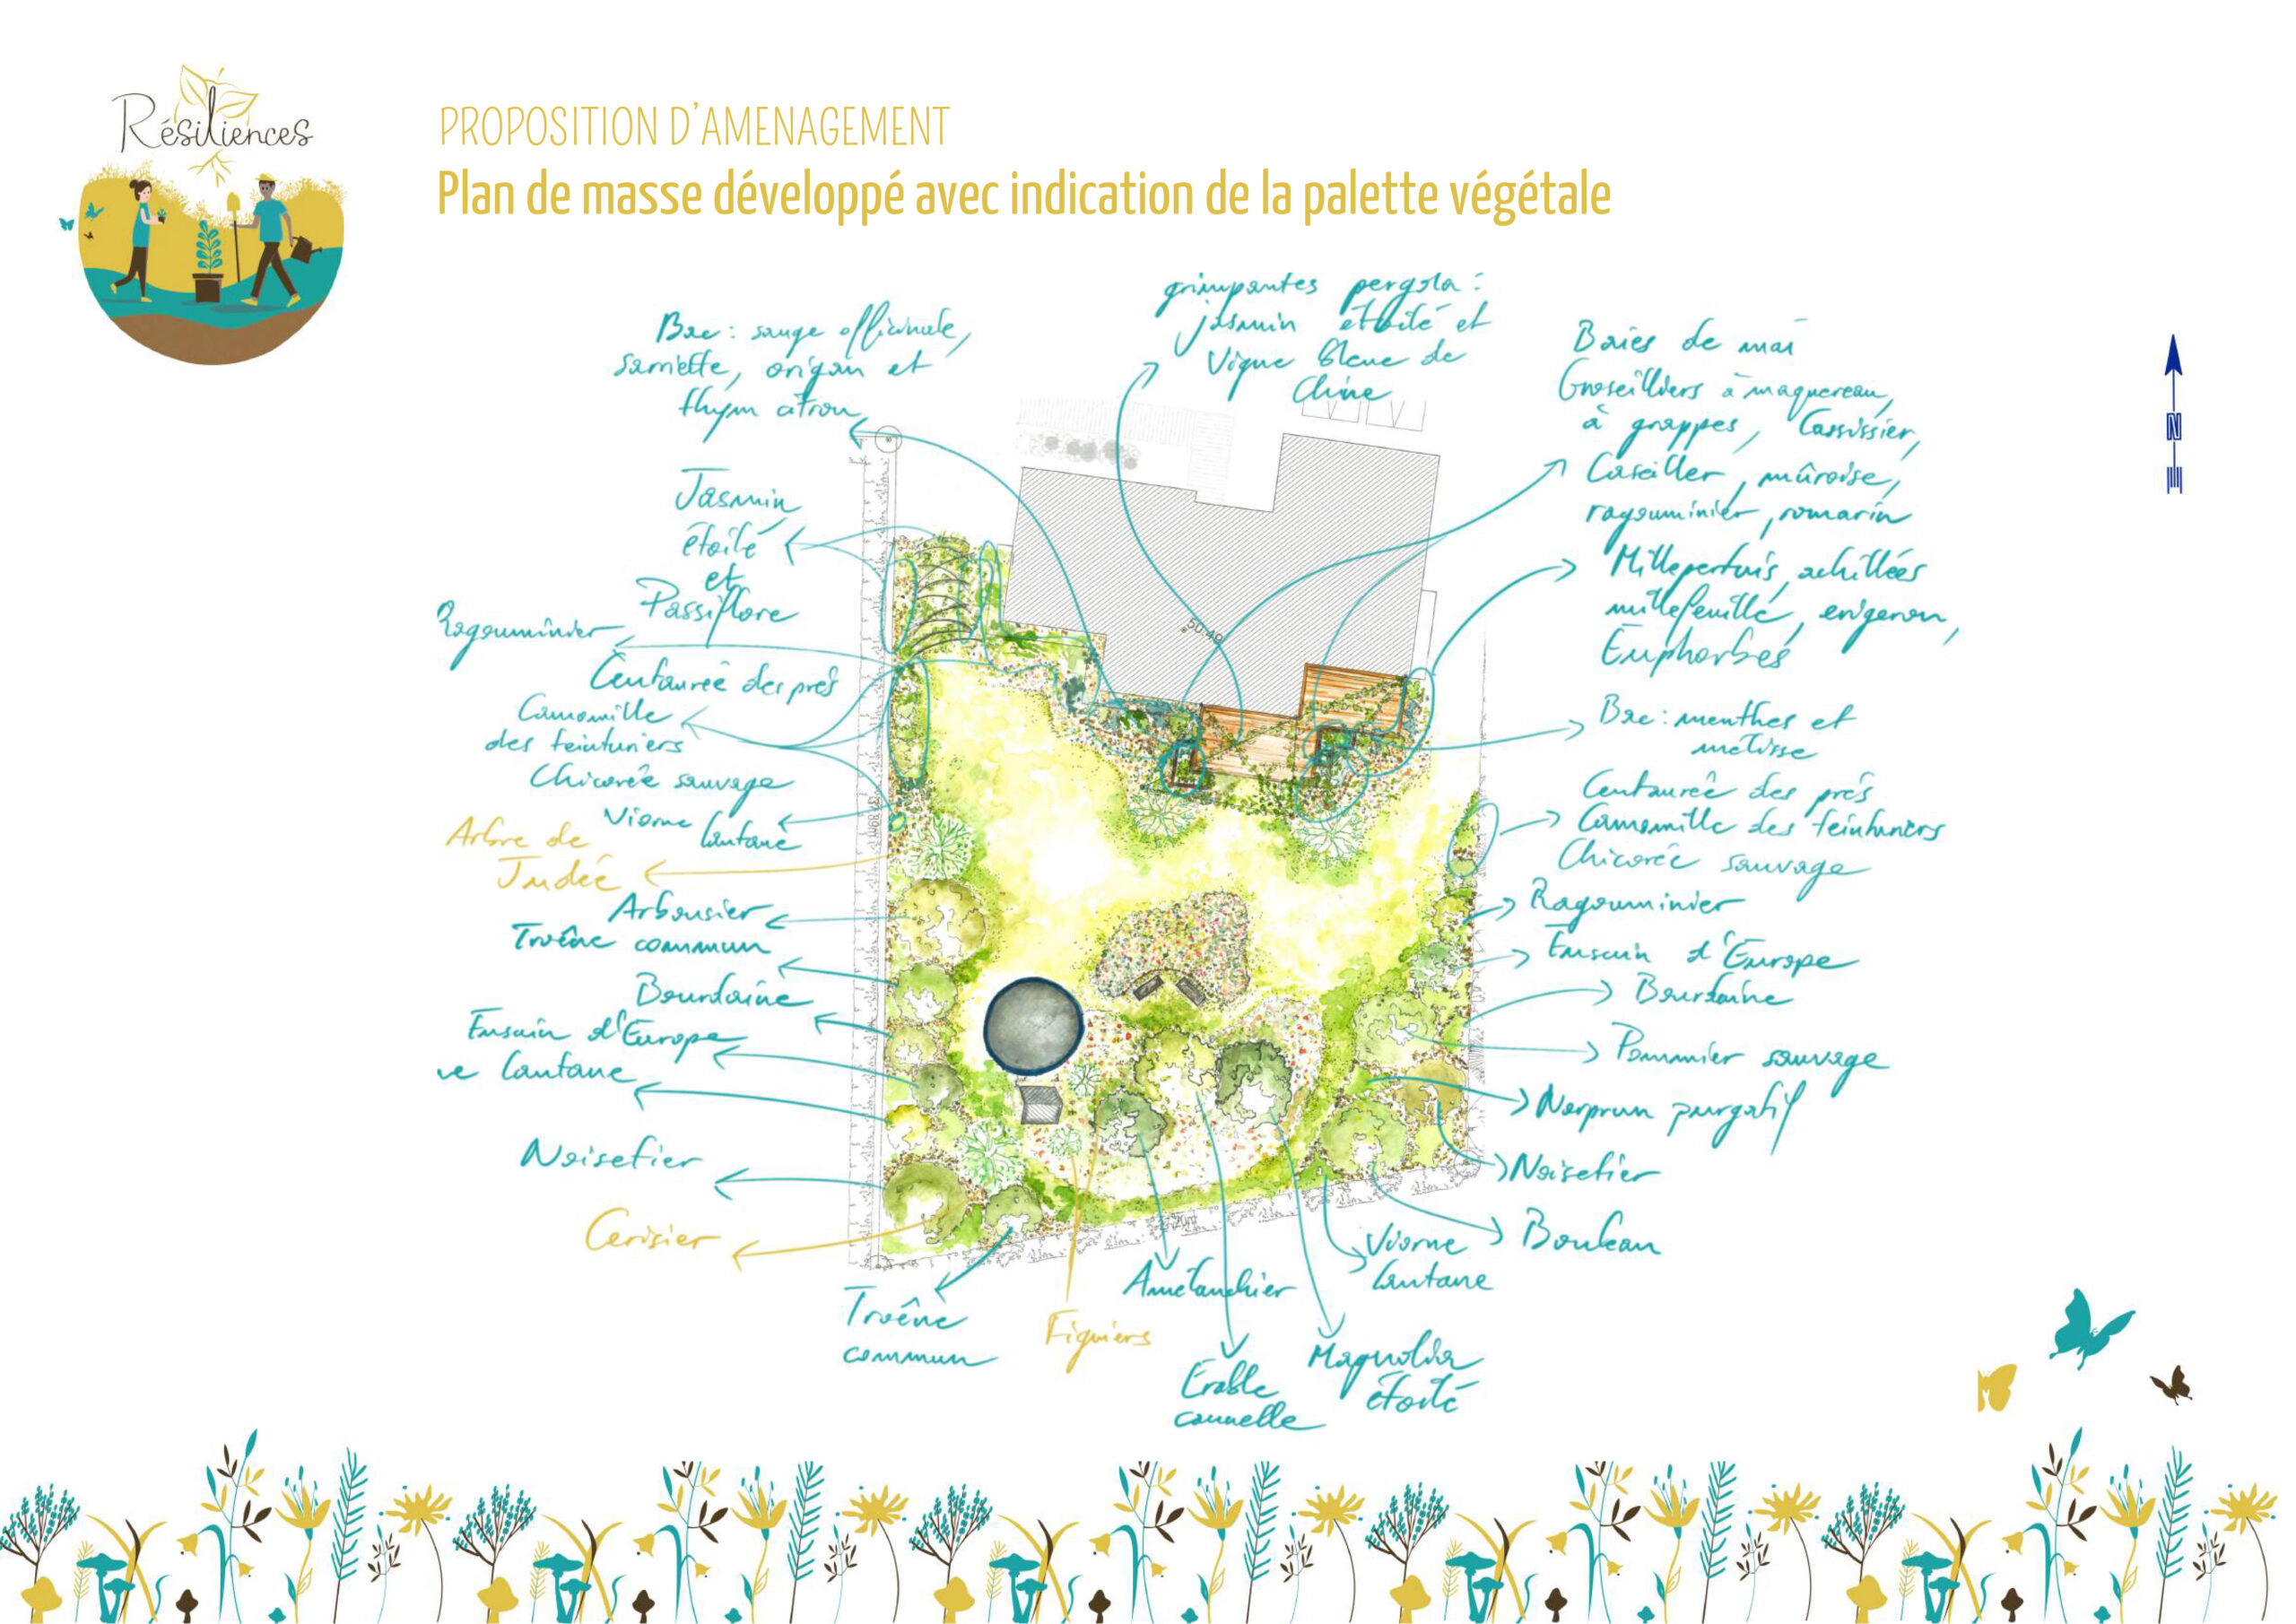 Résiliences
PROPOSITION D'AMENAGEMENT
Plan de masse développé avec indication de la palette végétale
Bac : sauge officinale,
sarriette, origan et
thym citron
grimpantes pergola :
jasmin étoilé et
Vigne bleue de
Chine
Baies de mai
Groseilliers à maquereau,
à grappes, Cassissier,
Caseiller, mûroise,
ragouminier, romarin
Millepertuis, achillées
millefeuille, erigeron,
Euphorbes
Bac : menthes et
mélisse
Centaurée des prés
Camomille des teinturiers
Chicorée sauvage
Ragouminier
Fusain d'Europe
Bourdaine
Pommier sauvage
Nerprun purgatif
Noisetier
Bouleau
Viorne
lantane
Magnolia
étoilé
Erable
cannelle
Amélanchier
Figuiers
Troène
commun
Cerisier
Noisetier
ne lantane
Fusain d'Europe
Bourdaine
Troène commun
Arbousier
Arbre de
Judée
Viorne lantane
Chicorée sauvage
Camomille
des teinturiers
Centaurée des prés
Ragouminier
Jasmin
étoilé
et
Passiflore
50.40
N